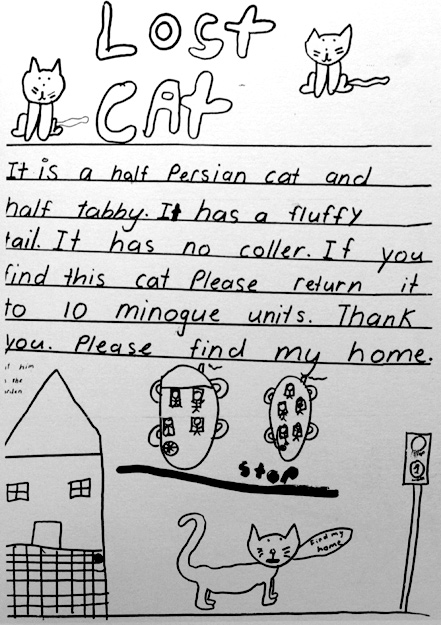 Lost
Cat
It is a half Persian cat and
half tabby. It has a fluffy
tail. It has no coller. If you
find this cat Please return it
to 10 minogue units. Thank
you. Please find my home.
him
the
stop
find my
home